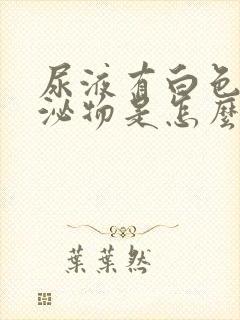 尿液有白色
泌物是怎麼
葉葉然